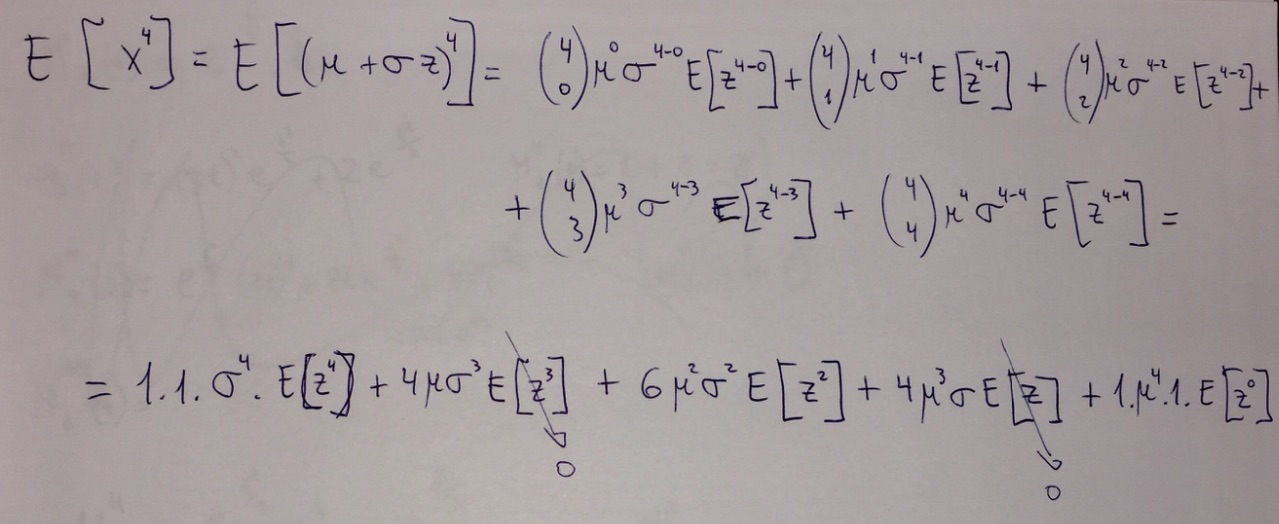 E[X⁴] = E[(μ + σz)⁴] = (4 0)μ⁰σ⁴⁻⁰E[z⁴⁻⁰] + (4 1)μ¹σ⁴⁻¹E[z⁴⁻¹] + (4 2)μ²σ⁴⁻²E[z⁴⁻²] +
+ (4 3)μ³σ⁴⁻³E[z⁴⁻³] + (4 4)μ⁴σ⁴⁻⁴E[z⁴⁻⁴] =
= 1.1.σ⁴.E[z⁴] + 4μσ³E[z³] + 6μ²σ²E[z²] + 4μ³σE[z] + 1.μ⁴.1.E[z⁰]
0 0